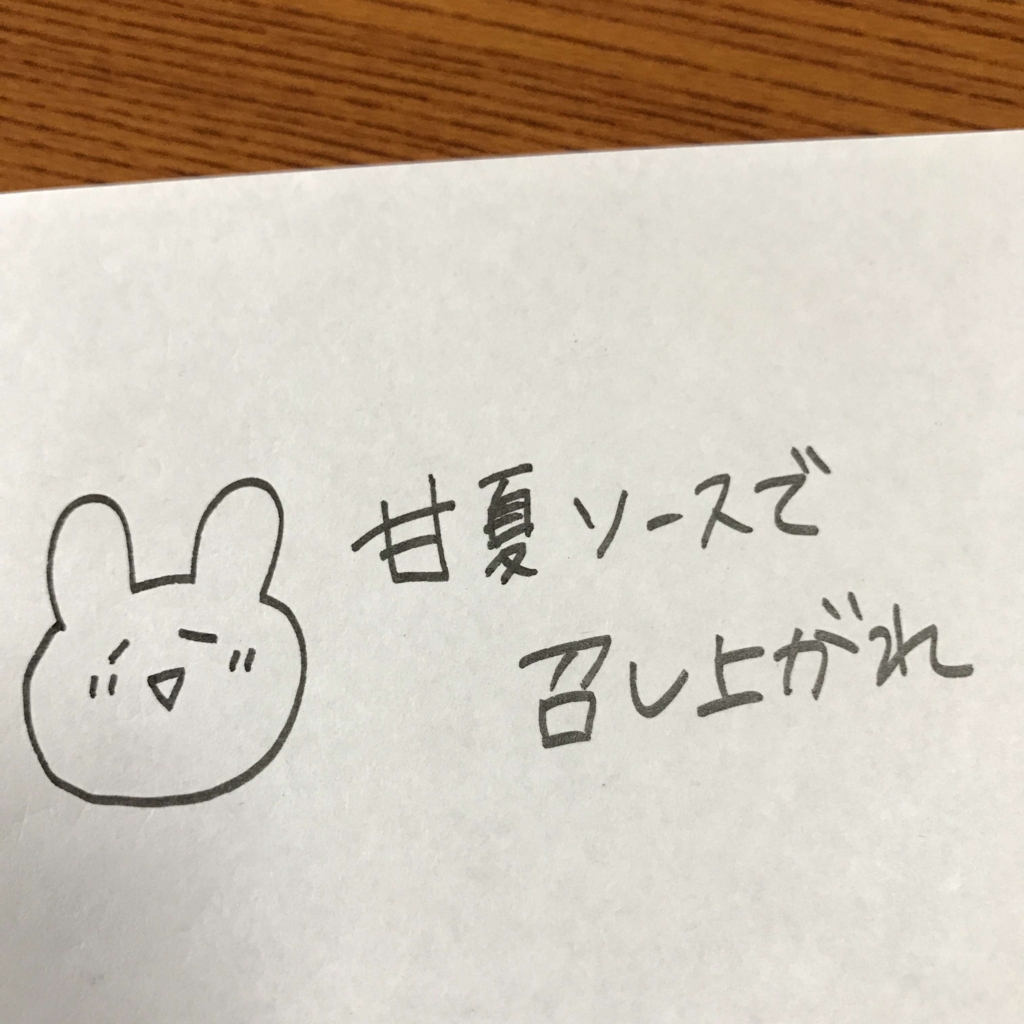 甘夏ソースで
召し上がれ